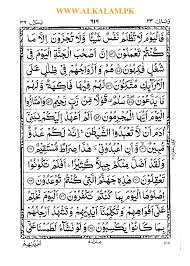 WWW.ALKALAM.PK
فَالْيَوْمَ لَا تُظْلَمُ نَفْسٌ شَيْئًا وَّلَا تُجْزَوْنَ اِلَّا مَا
كُنْتُمْ تَعْمَلُوْنَ ۝ اِنَّ اَصْحٰبَ الْجَنَّةِ الْيَوْمَ فِيْ
شُغُلٍ فٰكِهُوْنَ ۝ هُمْ وَاَزْوَاجُهُمْ فِيْ ظِلٰلٍ عَلَى
الْاَرَآئِكِ مُتَّكِـُٔوْنَ ۝ لَهُمْ فِيْهَا فَاكِهَةٌ وَّلَهُمْ
مَّا يَدَّعُوْنَ ۝ سَلٰمٌ قَوْلًا مِّنْ رَّبٍّ رَّحِيْمٍ ۝ وَامْتَازُوا
الْيَوْمَ اَيُّهَا الْمُجْرِمُوْنَ ۝ اَلَمْ اَعْهَدْ اِلَيْكُمْ يٰبَنِيْٓ
اٰدَمَ اَنْ لَّا تَعْبُدُوا الشَّيْطٰنَ اِنَّهٗ لَكُمْ عَدُوٌّ
مُّبِيْنٌ ۝ وَّاَنِ اعْبُدُوْنِيْ هٰذَا صِرَاطٌ مُّسْتَقِيْمٌ ۝
وَلَقَدْ اَضَلَّ مِنْكُمْ جِبِلًّا كَثِيْرًا اَفَلَمْ تَكُوْنُوْا
تَعْقِلُوْنَ ۝ هٰذِهٖ جَهَنَّمُ الَّتِيْ كُنْتُمْ تُوْعَدُوْنَ ۝
اِصْلَوْهَا الْيَوْمَ بِمَا كُنْتُمْ تَكْفُرُوْنَ ۝ اَلْيَوْمَ نَخْتِمُ
عَلٰٓى اَفْوَاهِهِمْ وَتُكَلِّمُنَآ اَيْدِيْهِمْ وَتَشْهَدُ اَرْجُلُهُمْ
بِمَا كَانُوْا يَكْسِبُوْنَ ۝ وَلَوْ نَشَآءُ لَطَمَسْنَا عَلٰٓى